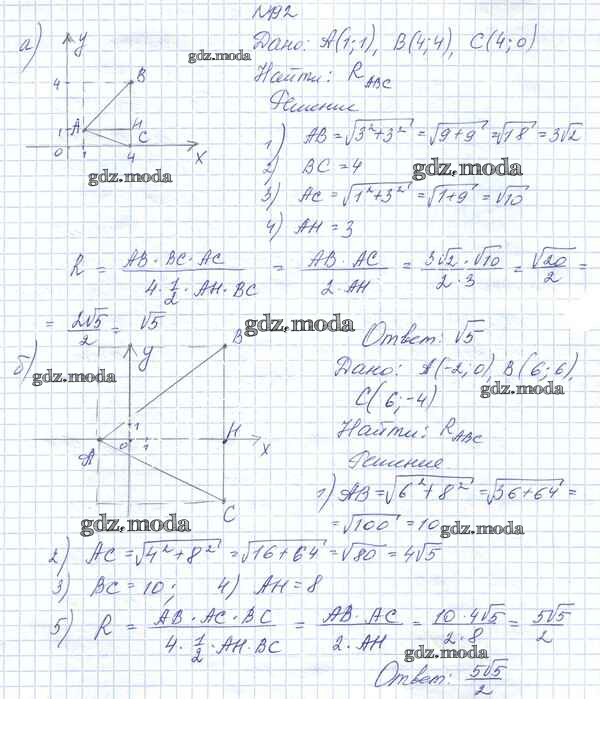 №192
а)
y
4
B
A
H
1
C
0
1
4
x
gdz.moda
Дано: A(1;1), B(4;4), C(4;0)
gdz.moda
Найти: R_ABC
Решение
1) AB = √(3²+3²) = √(9+9) = √18 = 3√2
2) BC = 4
gdz.moda
3) AC = √(1²+3²) = √(1+9) = √10
4) AH = 3
R = (AB·BC·AC)/(4·1/2·AH·BC) = (AB·AC)/(2·AH) = (3√2·√10)/(2·3) = √20/2 =
= 2√5/2 = √5
gdz.moda
Ответ: √5
б)
gdz.moda
y
B
1
A
0
1
H
x
C
gdz.moda
Дано: A(-2;0), B(6;6),
gdz.moda
C(6;-4)
Найти: R_ABC
Решение
1) AB = √(6²+8²) = √(36+64) =
= √100 = 10
gdz.moda
2) AC = √(4²+8²) = √(16+64) = √80 = 4√5
3) BC = 10; 4) AH = 8
5) R = (AB·AC·BC)/(4·1/2·AH·BC) = (AB·AC)/(2·AH) = (10·4√5)/(2·8) = 5√5/2
gdz.moda
Ответ: 5√5/2